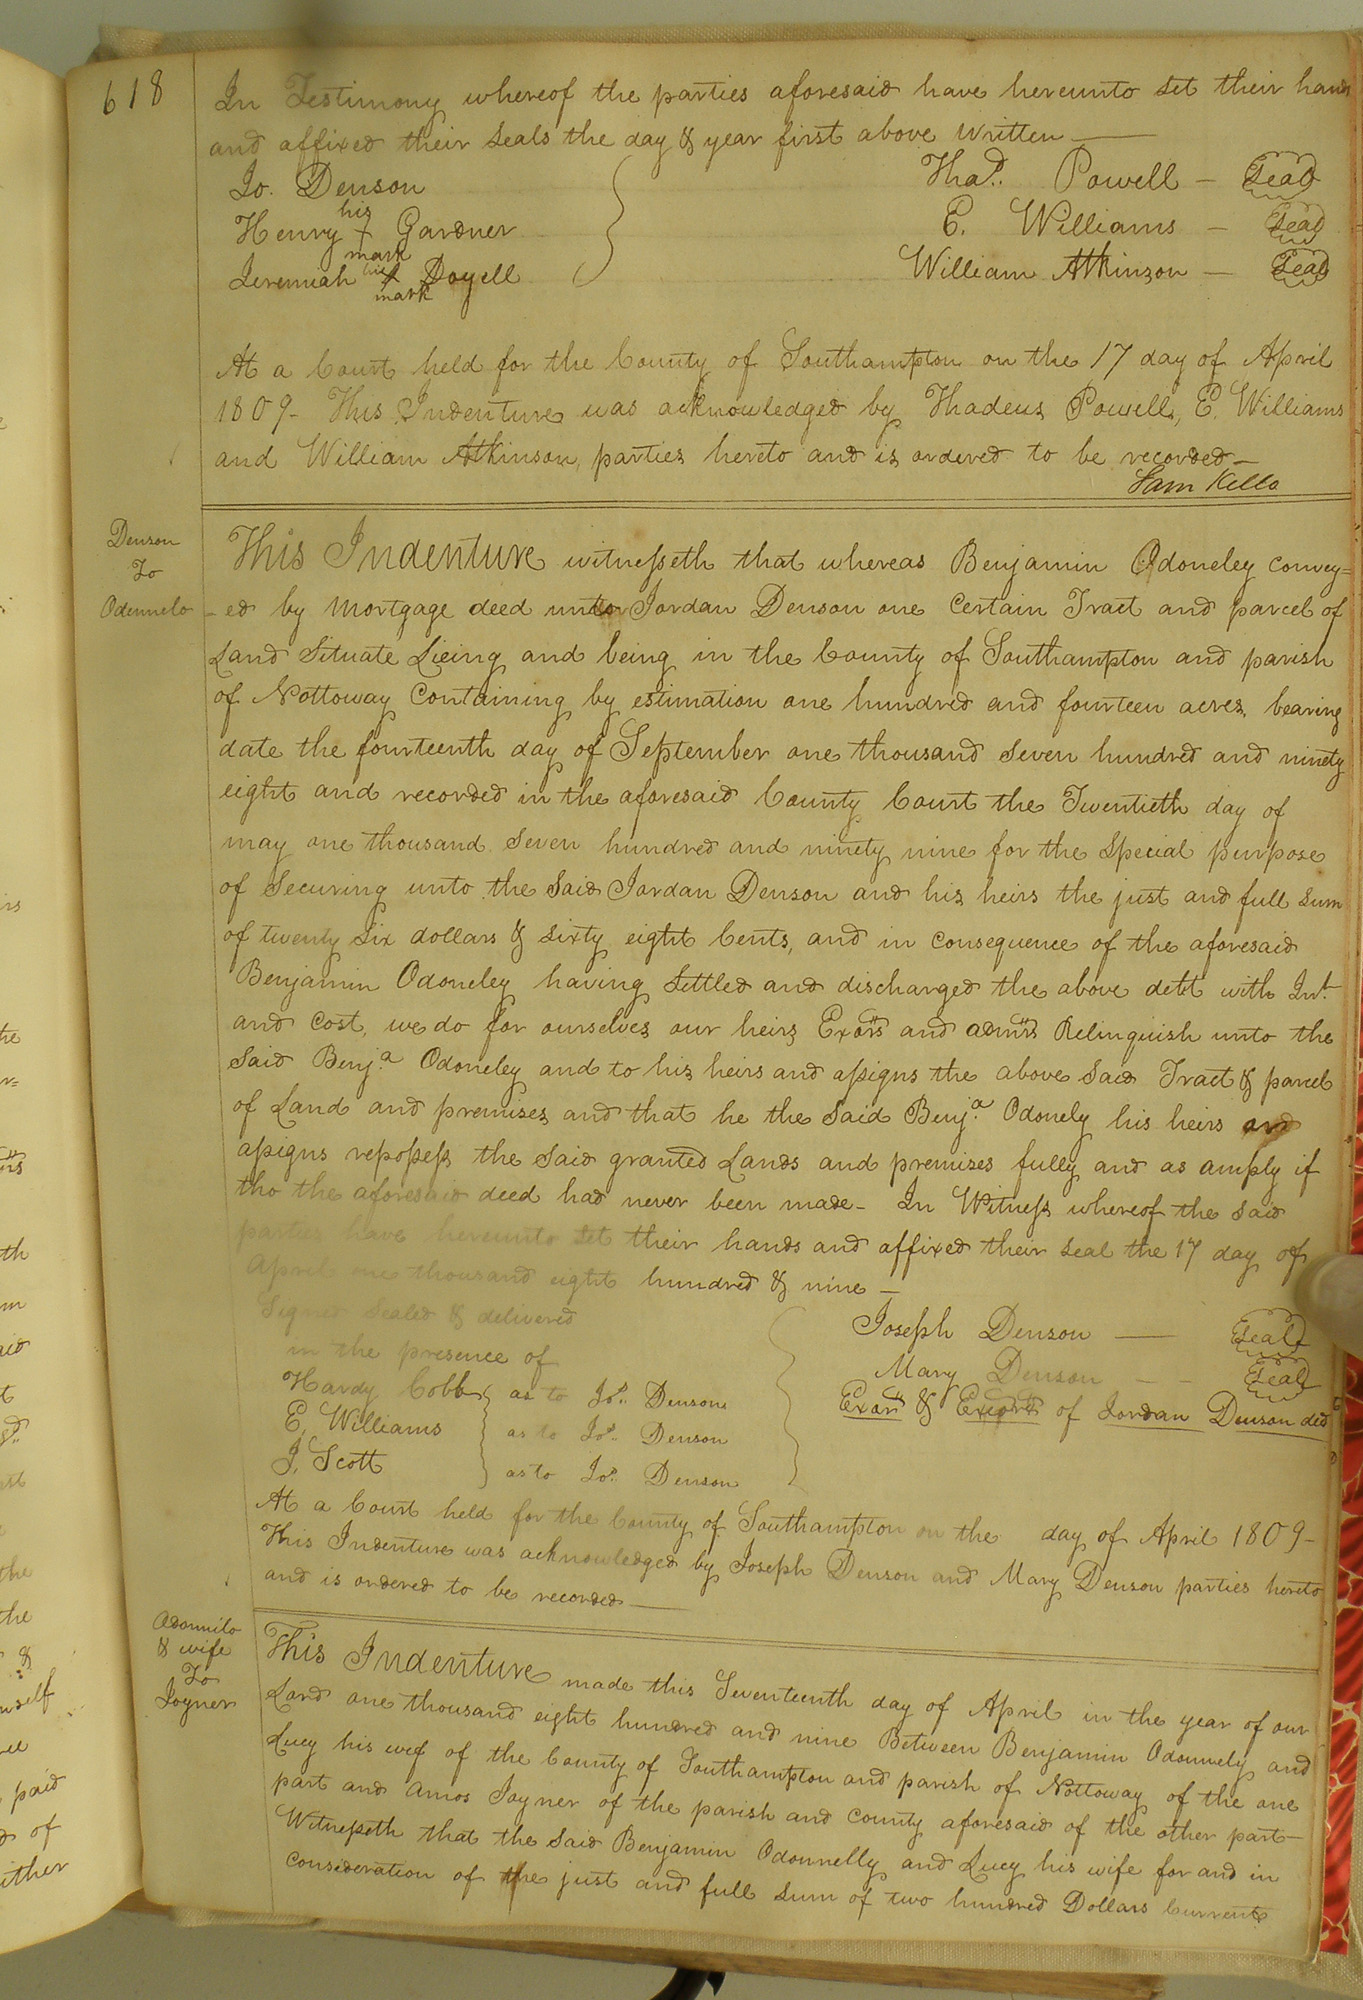 618
In Testimony whereof the parties aforesaid have hereunto set their hands
and affixed their seals the day & year first above Written —
Jo. Denson
Thad. Powell — Seal
Henry his + mark Gardner
E. Williams — Seal
Jeremiah his + mark Doyell
William Atkinson — Seal
At a Court held for the County of Southampton on the 17 day of April
1809 - This Indenture was acknowledged by Thadeus Powell, E. Williams
and William Atkinson, parties hereto and is ordered to be recorded —
Sam Kello
Denson
To
Odonnelo
This Indenture witnesseth that whereas Benjamin Odoneley convey=
-ed by Mortgage deed unto Jordan Denson one Certain Tract and parcel of
Land Situate Lieing and being in the County of Southampton and parish
of Nottoway Containing by estimation one hundred and fourteen acres, bearing
date the fourteenth day of September one thousand seven hundred and ninety
eight and recorded in the aforesaid County Court the Twentieth day of
may one thousand seven hundred and ninety nine for the special purpose
of Securing unto the said Jordan Denson and his heirs the just and full sum
of twenty six dollars & sixty eight Cents, and in consequence of the aforesaid
Benjamin Odoneley having settled and discharged the above debt with Int.
and cost, we do for ourselves our heirs Exors and admrs Relinquish unto the
said Benja. Odoneley and to his heirs and assigns the above said Tract & parcel
of Land and premises, and that he the said Benja. Odonely his heirs and
assigns repossess the said granted Lands and premises fully and as amply if
tho the aforesaid deed had never been made - In Witness whereof the said
parties have hereunto set their hands and affixed their seal the 17 day of
April one thousand eight hundred & nine —
Signed Sealed & delivered
in the presence of
Joseph Denson — Seal
Mary Denson — - Seal
Hardy Cobb as to Jos. Denson
Exor & Exorx of Jordan Denson decd
E. Williams as to Jos. Denson
J. Scott as to Jos. Denson
At a Court held for the County of Southampton on the day of April 1809 -
This Indenture was acknowledged by Joseph Denson and Mary Denson parties hereto
and is ordered to be recorded —
Odonnilo
& wife
To
Joyner
This Indenture made this Seventeenth day of April in the year of our
Lord one thousand eight hundred and nine Between Benjamin Odonnely and
Lucy his wef of the County of Southampton and parish of Nottoway of the one
part and Amos Joyner of the parish and County aforesaid of the other part —
Witnesseth that the said Benjamin Odonnelly and Lucy his wife for and in
consideration of the just and full sum of two hundred Dollars Current